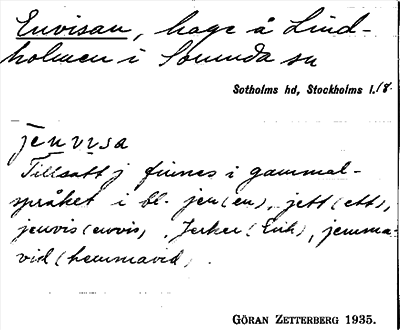 Envisan, hage å Lind-
holmen i Sorunda sn
Sotholms hd, Stockholms l. 18.
jenvisa
Tillsatt j finnes i gammal-
språket i bl. jen (en), jett (ett),
jenvis (envis), Jerker (Erik), jemma-
vid (hemmavid).
GÖRAN ZETTERBERG 1935.